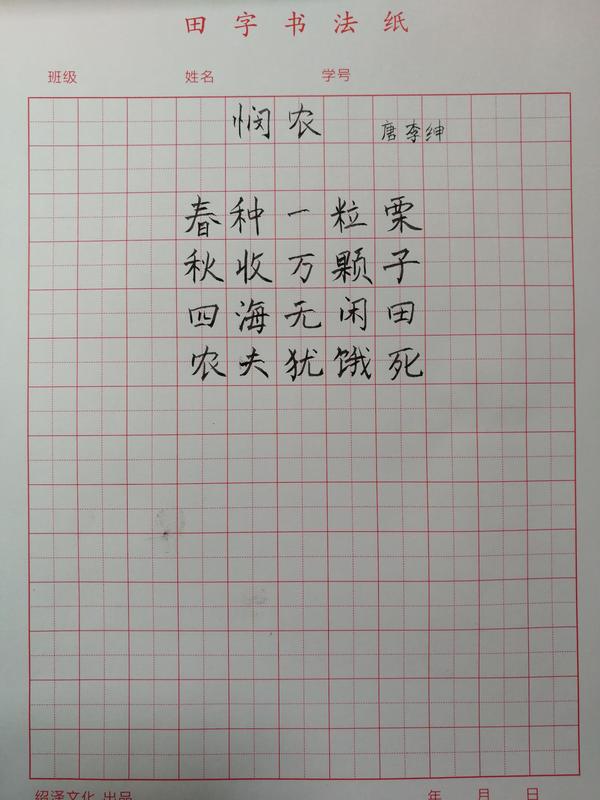 田字书法纸
班级 姓名 学号
悯农 唐 李绅
春种一粒粟
秋收万颗子
四海无闲田
农夫犹饿死
绍泽文化 出品 年 月 日